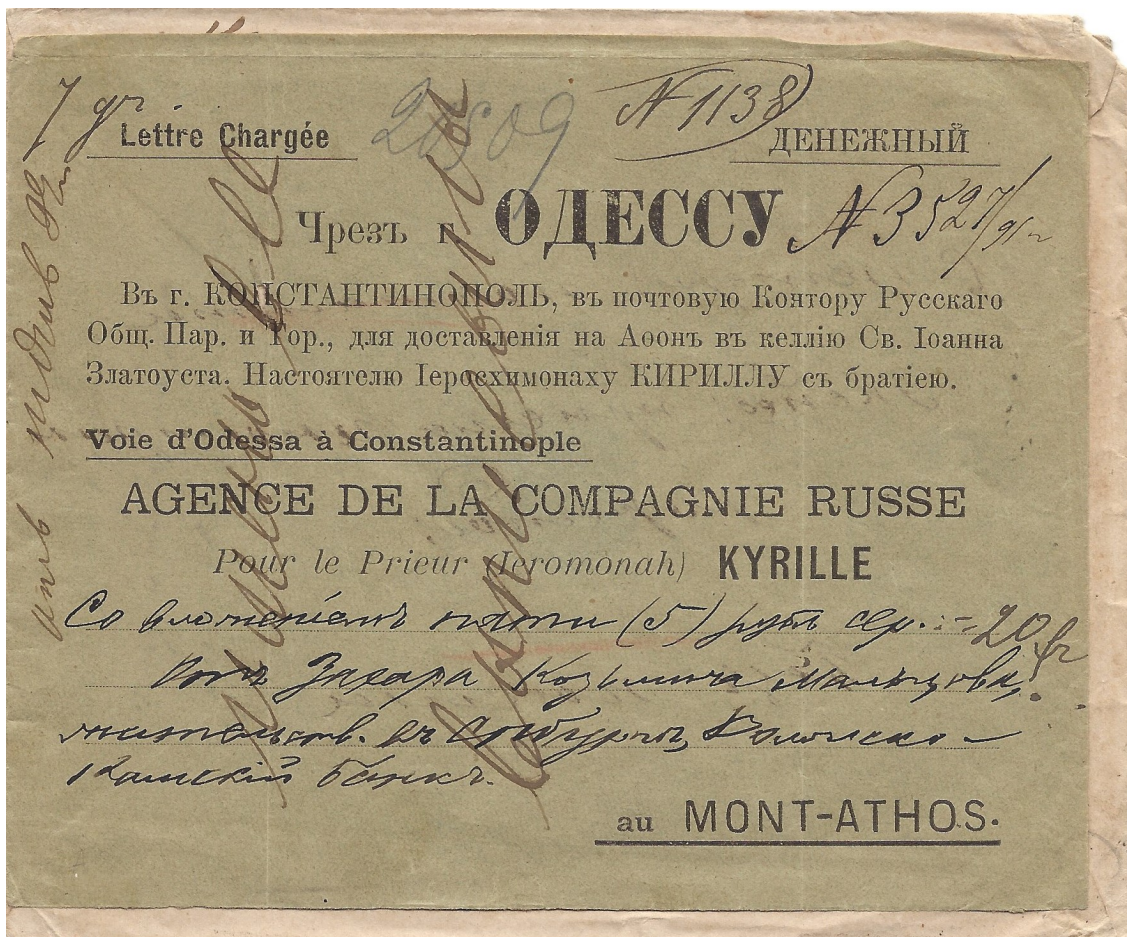 7 gr
Lettre Chargée
20809
N 1138
ДЕНЕЖНЫЙ
Чрезъ г. ОДЕССУ
N 3527/91 г
Въ г. КОНСТАНТИНОПОЛЬ, въ почтовую Контору Русскаго
Общ. Пар. и Тор., для доставленія на Аѳонъ въ келлію Св. Іоанна
Златоуста. Настоятелю Іеросхимонаху КИРИЛЛУ съ братіею.
Voie d'Odessa à Constantinople
AGENCE DE LA COMPAGNIE RUSSE
Pour le Prieur (Ieromonah) KYRILLE
Со вложеніемъ пяти (5) руб. сер. = 20 fr
Отъ Захара Козьмича Мальцова,
жительств. въ С. Петербургѣ, Волжско-
Камскій Банкъ.
au MONT-ATHOS.